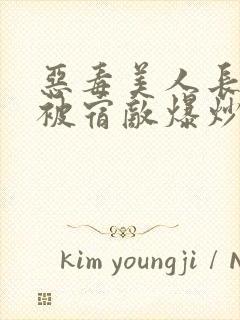 惡毒美人長
被宿敵爆炒
kim youngji / N